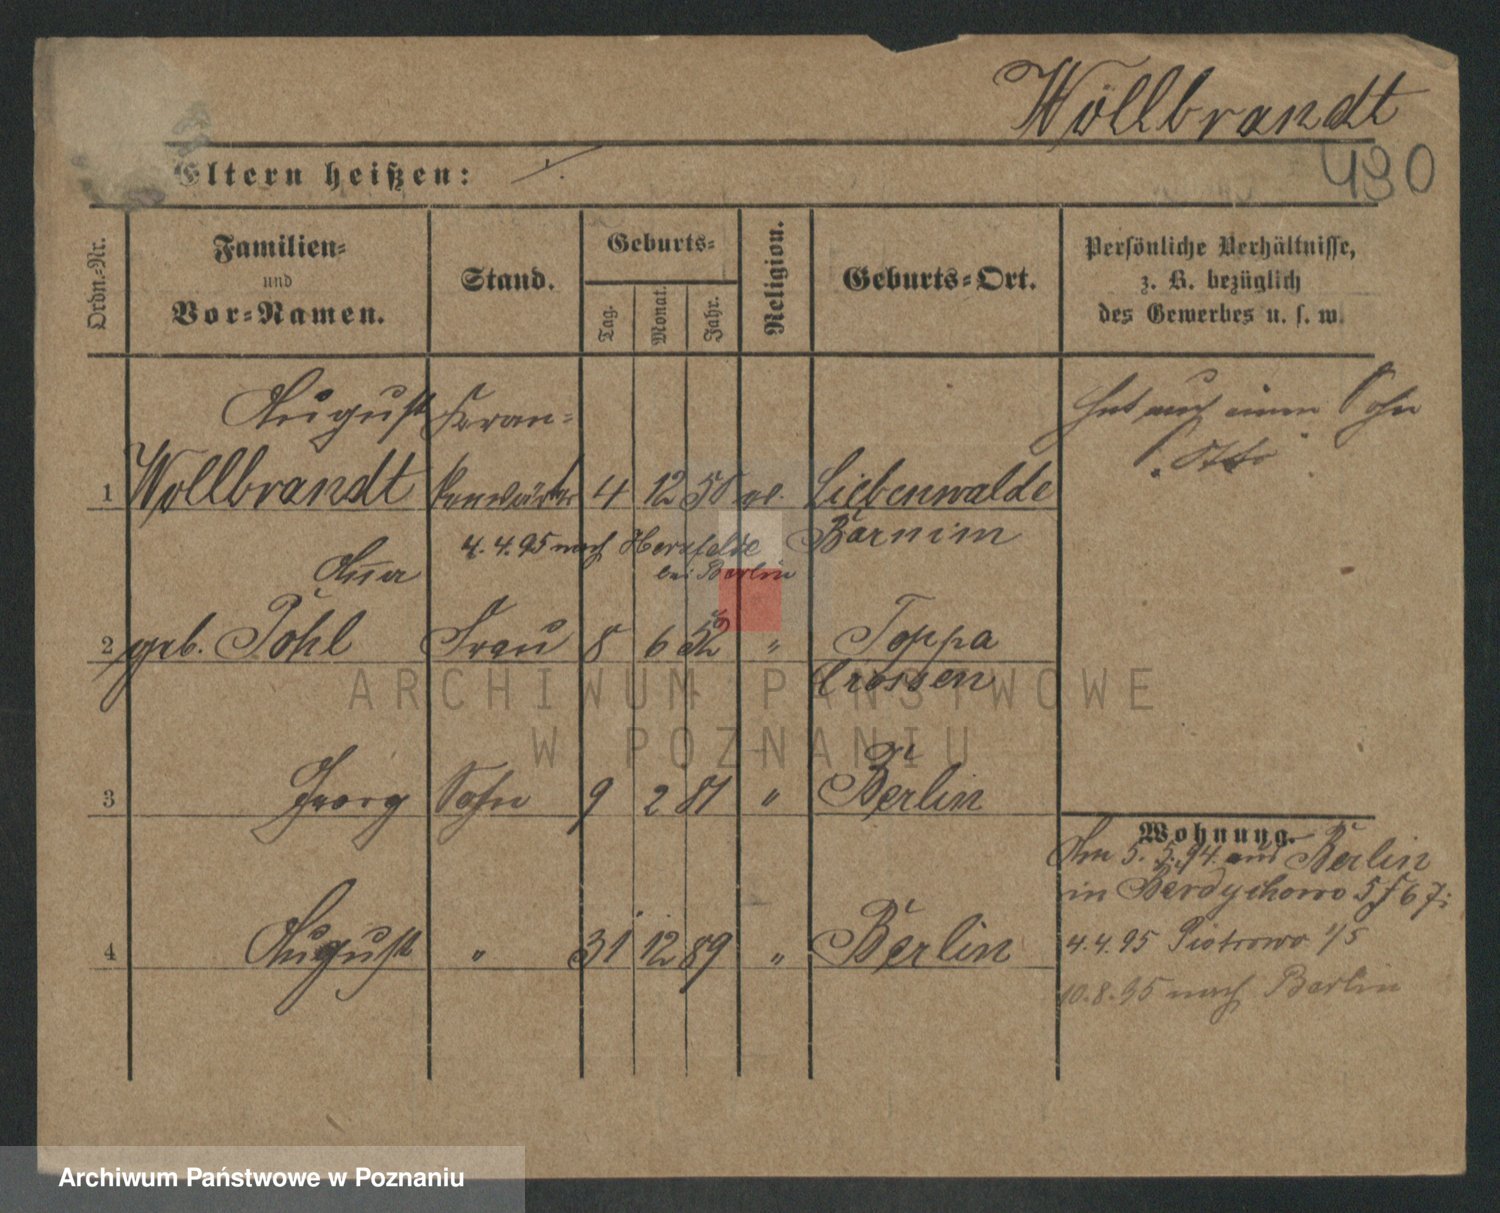 Wöllbrandt
490
Eltern heißen: /.
Ordn.-Nr.
Familien-
und
Vor-Namen.
Stand.
Geburts-
Tag.
Monat.
Jahr.
Religion.
Geburts-Ort.
Persönliche Verhältnisse,
z. B. bezüglich
des Gewerbes u. s. w.
August Kran-
1 Wollbrandt kenwärter 4 12 50 ev. Liebenwalde
Barnim
hat auch einen Sohn
Otto
4. 4. 95 nach Herzfelde
bei Berlin
2 geb. Pohl Frau 8 6 52 " Toppa
Crossen
3 Georg Sohn 9 2 81 " Berlin
4 August " 31 12 89 " Berlin
Wohnung.
Am 5. 5. 94 aus Berlin
in Berdychowo 5/6 7:
4. 4. 95 Piotrowo 1/5
10. 8. 95 nach Berlin
ARCHIWUM PAŃSTWOWE
W POZNANIU
Archiwum Państwowe w Poznaniu